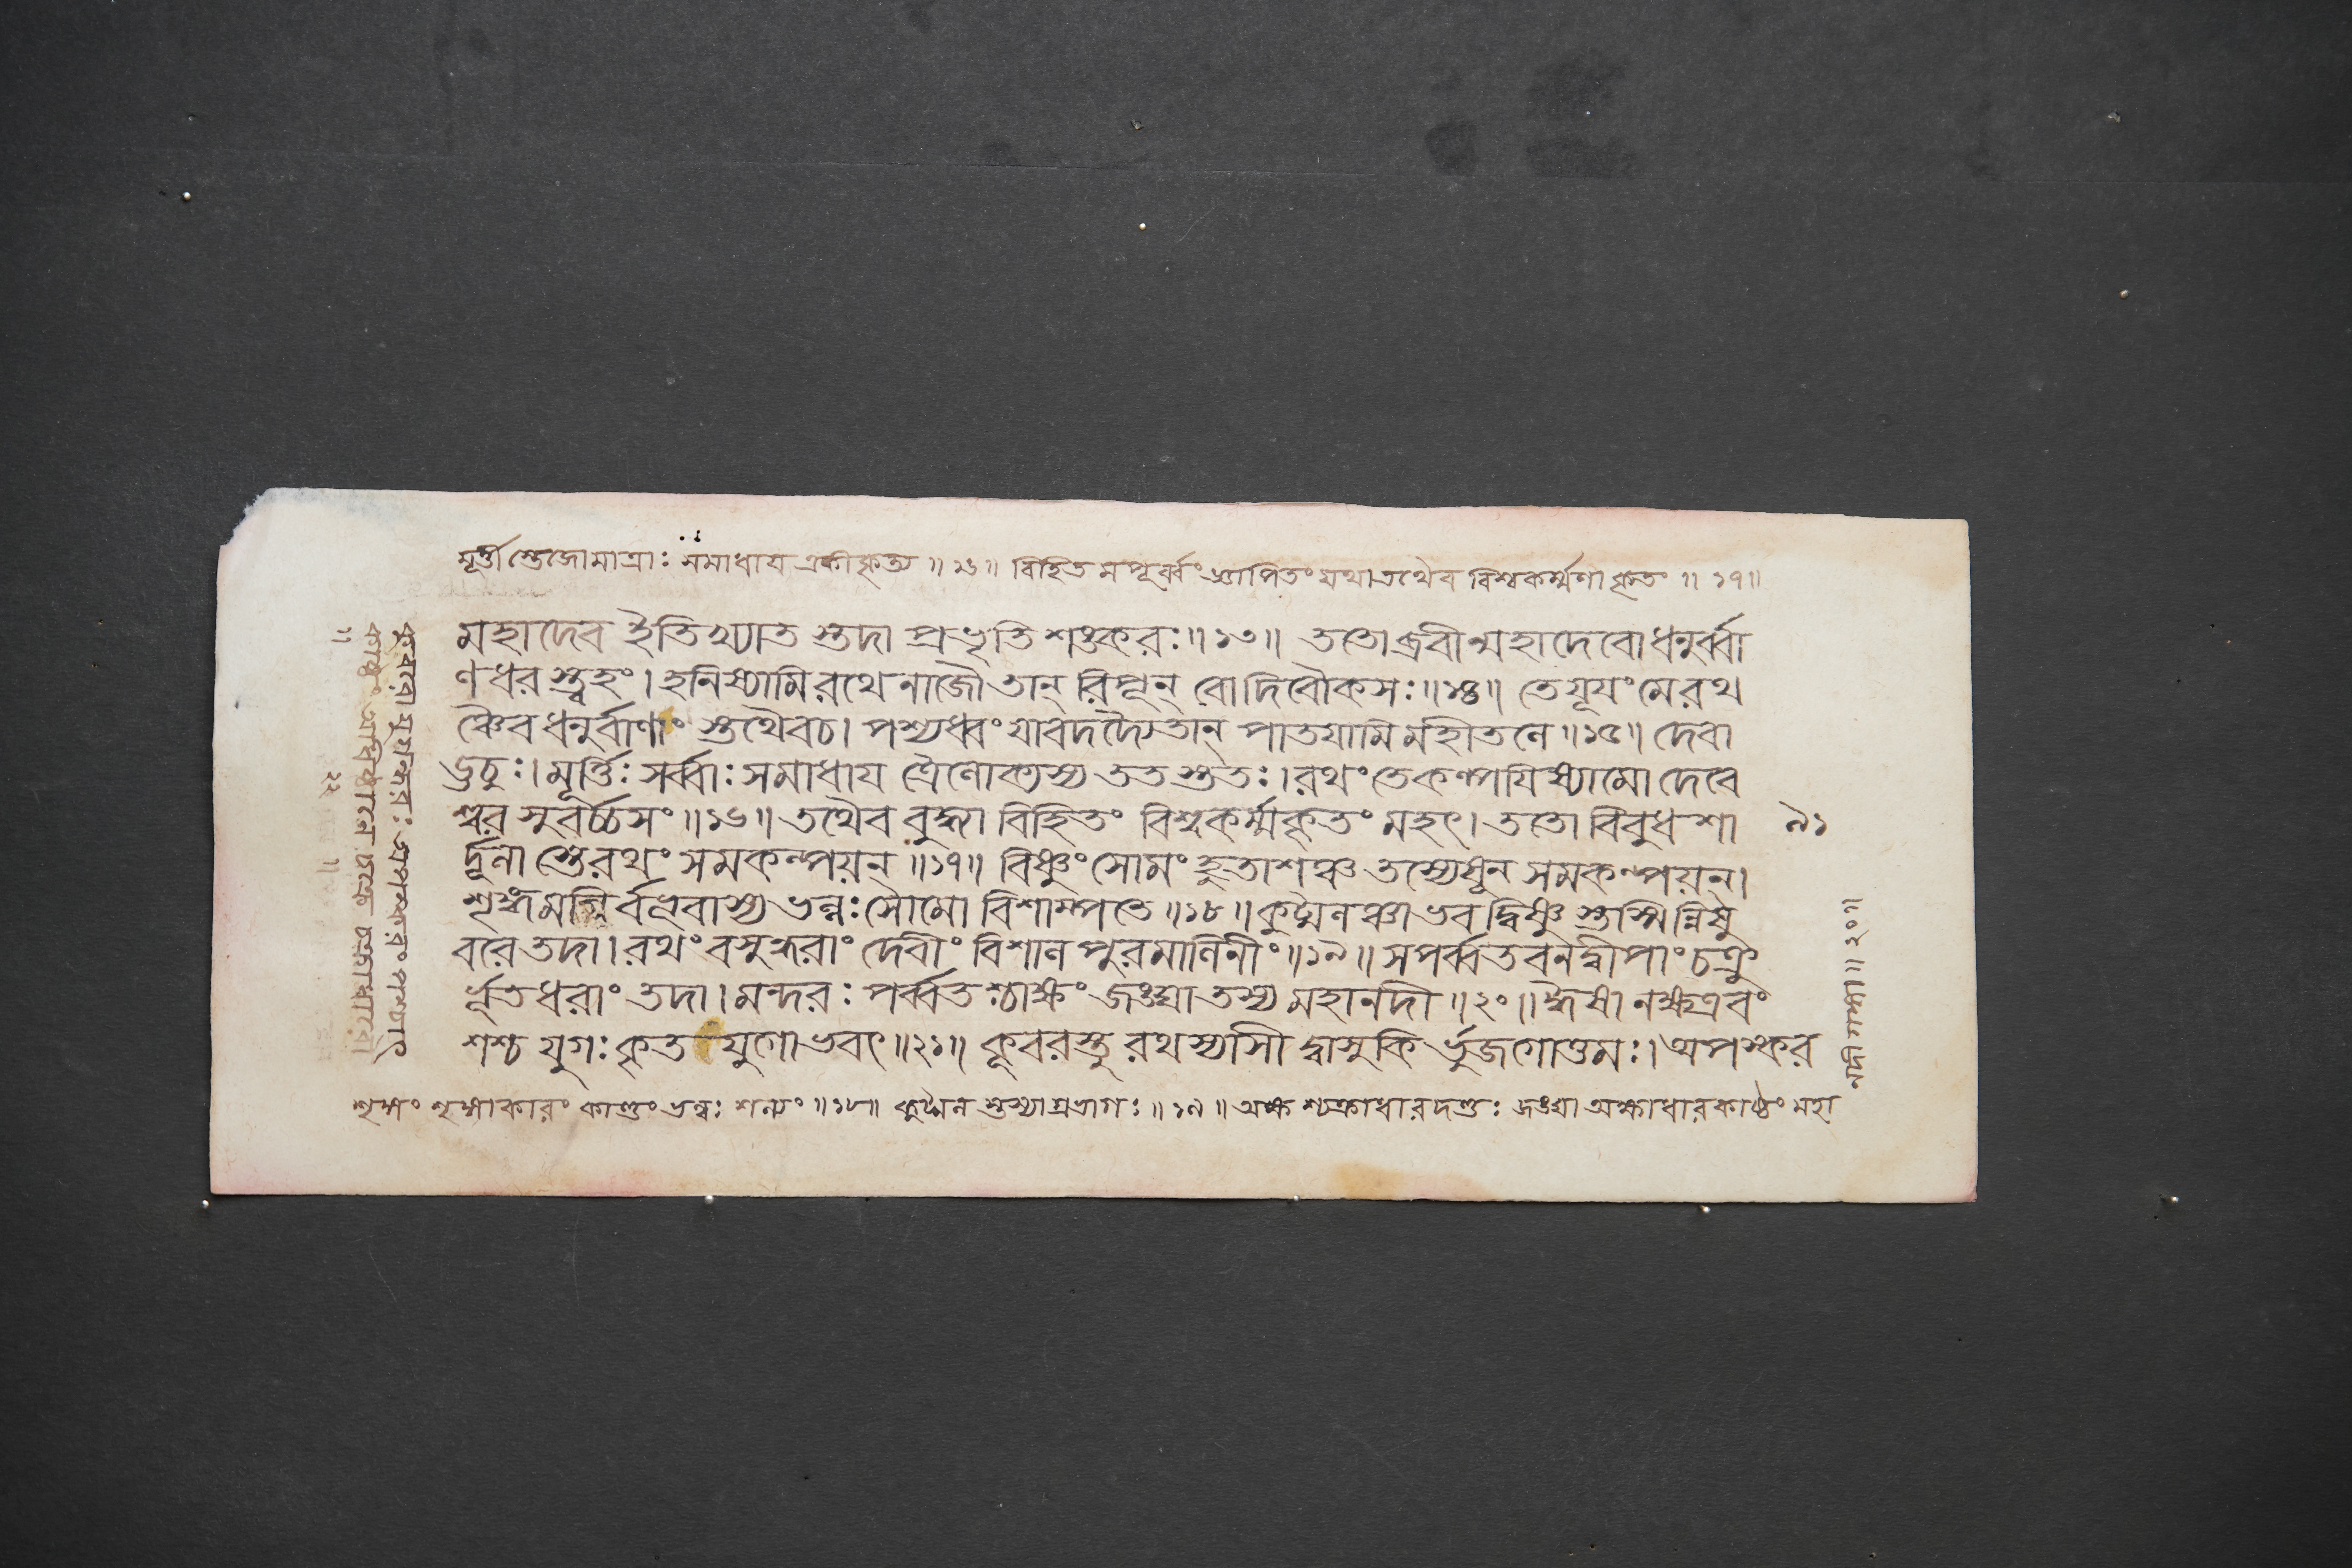 মূর্ত্তীস্তেজোমাত্রাঃ সমাধায একীকৃত্য ॥ ১৬॥ বিহিতমপূর্ব্বং জ্ঞাপিতং যথাতথৈব বিশ্বকর্ম্মণাকৃতং ॥ ১৭॥
মহাদেব ইতিখ্যাত স্তদা প্রভৃতি শঙ্করঃ॥১৩॥ ততোব্রবীন্মহাদেবোধনুর্ব্বা
ণধর স্ত্বহং। হনিষ্যামিরথেনাজৌতান্ রিপূন্ বোদিবৌকসঃ॥১৪॥ তেযূযংমেরথ
ঞ্চৈবধনুর্বাণং স্তথৈবচ। পশ্যধ্বং যাবদদ্যৈতান্ পাতযামিমহীতলে॥১৫॥ দেবা
ঊচুঃ।মূর্ত্তিঃ সর্ব্বাঃ সমাধায ত্রৈলোক্যস্য ততস্ততঃ।রথংতেকল্পযিষ্যামোদেবে
শ্বরসুবর্চ্চসং॥১৬॥তথৈব বুদ্ধ্যা বিহিতং বিশ্বকর্ম্মকৃতং মহৎ।ততো বিবুধশা
৯১
র্দ্দূলাস্তেরথং সমকল্পয়ন্॥১৭॥ বিষ্ণুংসোমং হুতাশঞ্চতস্যেষূন সমকল্পয়ন্।
শৃঙ্গমগ্নির্বভূবাস্য ভল্লঃসৌমো বিশাম্পতে॥১৮॥কুট্মলঞ্চাভবদ্বিষ্ণুস্তস্মিন্নিষু
বরেতদা।রথং বসুন্ধরাং দেবীং বিশালপুরমালিনীং॥১৯॥সপর্ব্বতবনদ্বীপাংচক্রু
র্ভূতধরাং তদা।মন্দরঃ পর্ব্বতশ্চাক্ষং জঙ্ঘাতস্যমহানদী॥২০॥ঈষা নক্ষত্রবং
শশ্চ যুগঃকৃতযুগোভবৎ॥২১॥ কূবরস্তুরথস্যাসীদ্বাসুকির্ভুজগোত্তমঃ।অপস্কর
শৃঙ্গং শৃঙ্গাকারং কাণ্ডং ভল্লঃ শল্যং ॥১৮॥ কুট্মল স্তস্যাগ্রভাগঃ ॥১৯॥ অক্ষশ্চক্রাধারদণ্ডঃ জঙ্ঘা অক্ষাধারকাষ্ঠং মহা
॥২০॥
কূবরোযুগন্ধরঃ অপস্করং পশ্চাৎ
কাষ্ঠং
২২